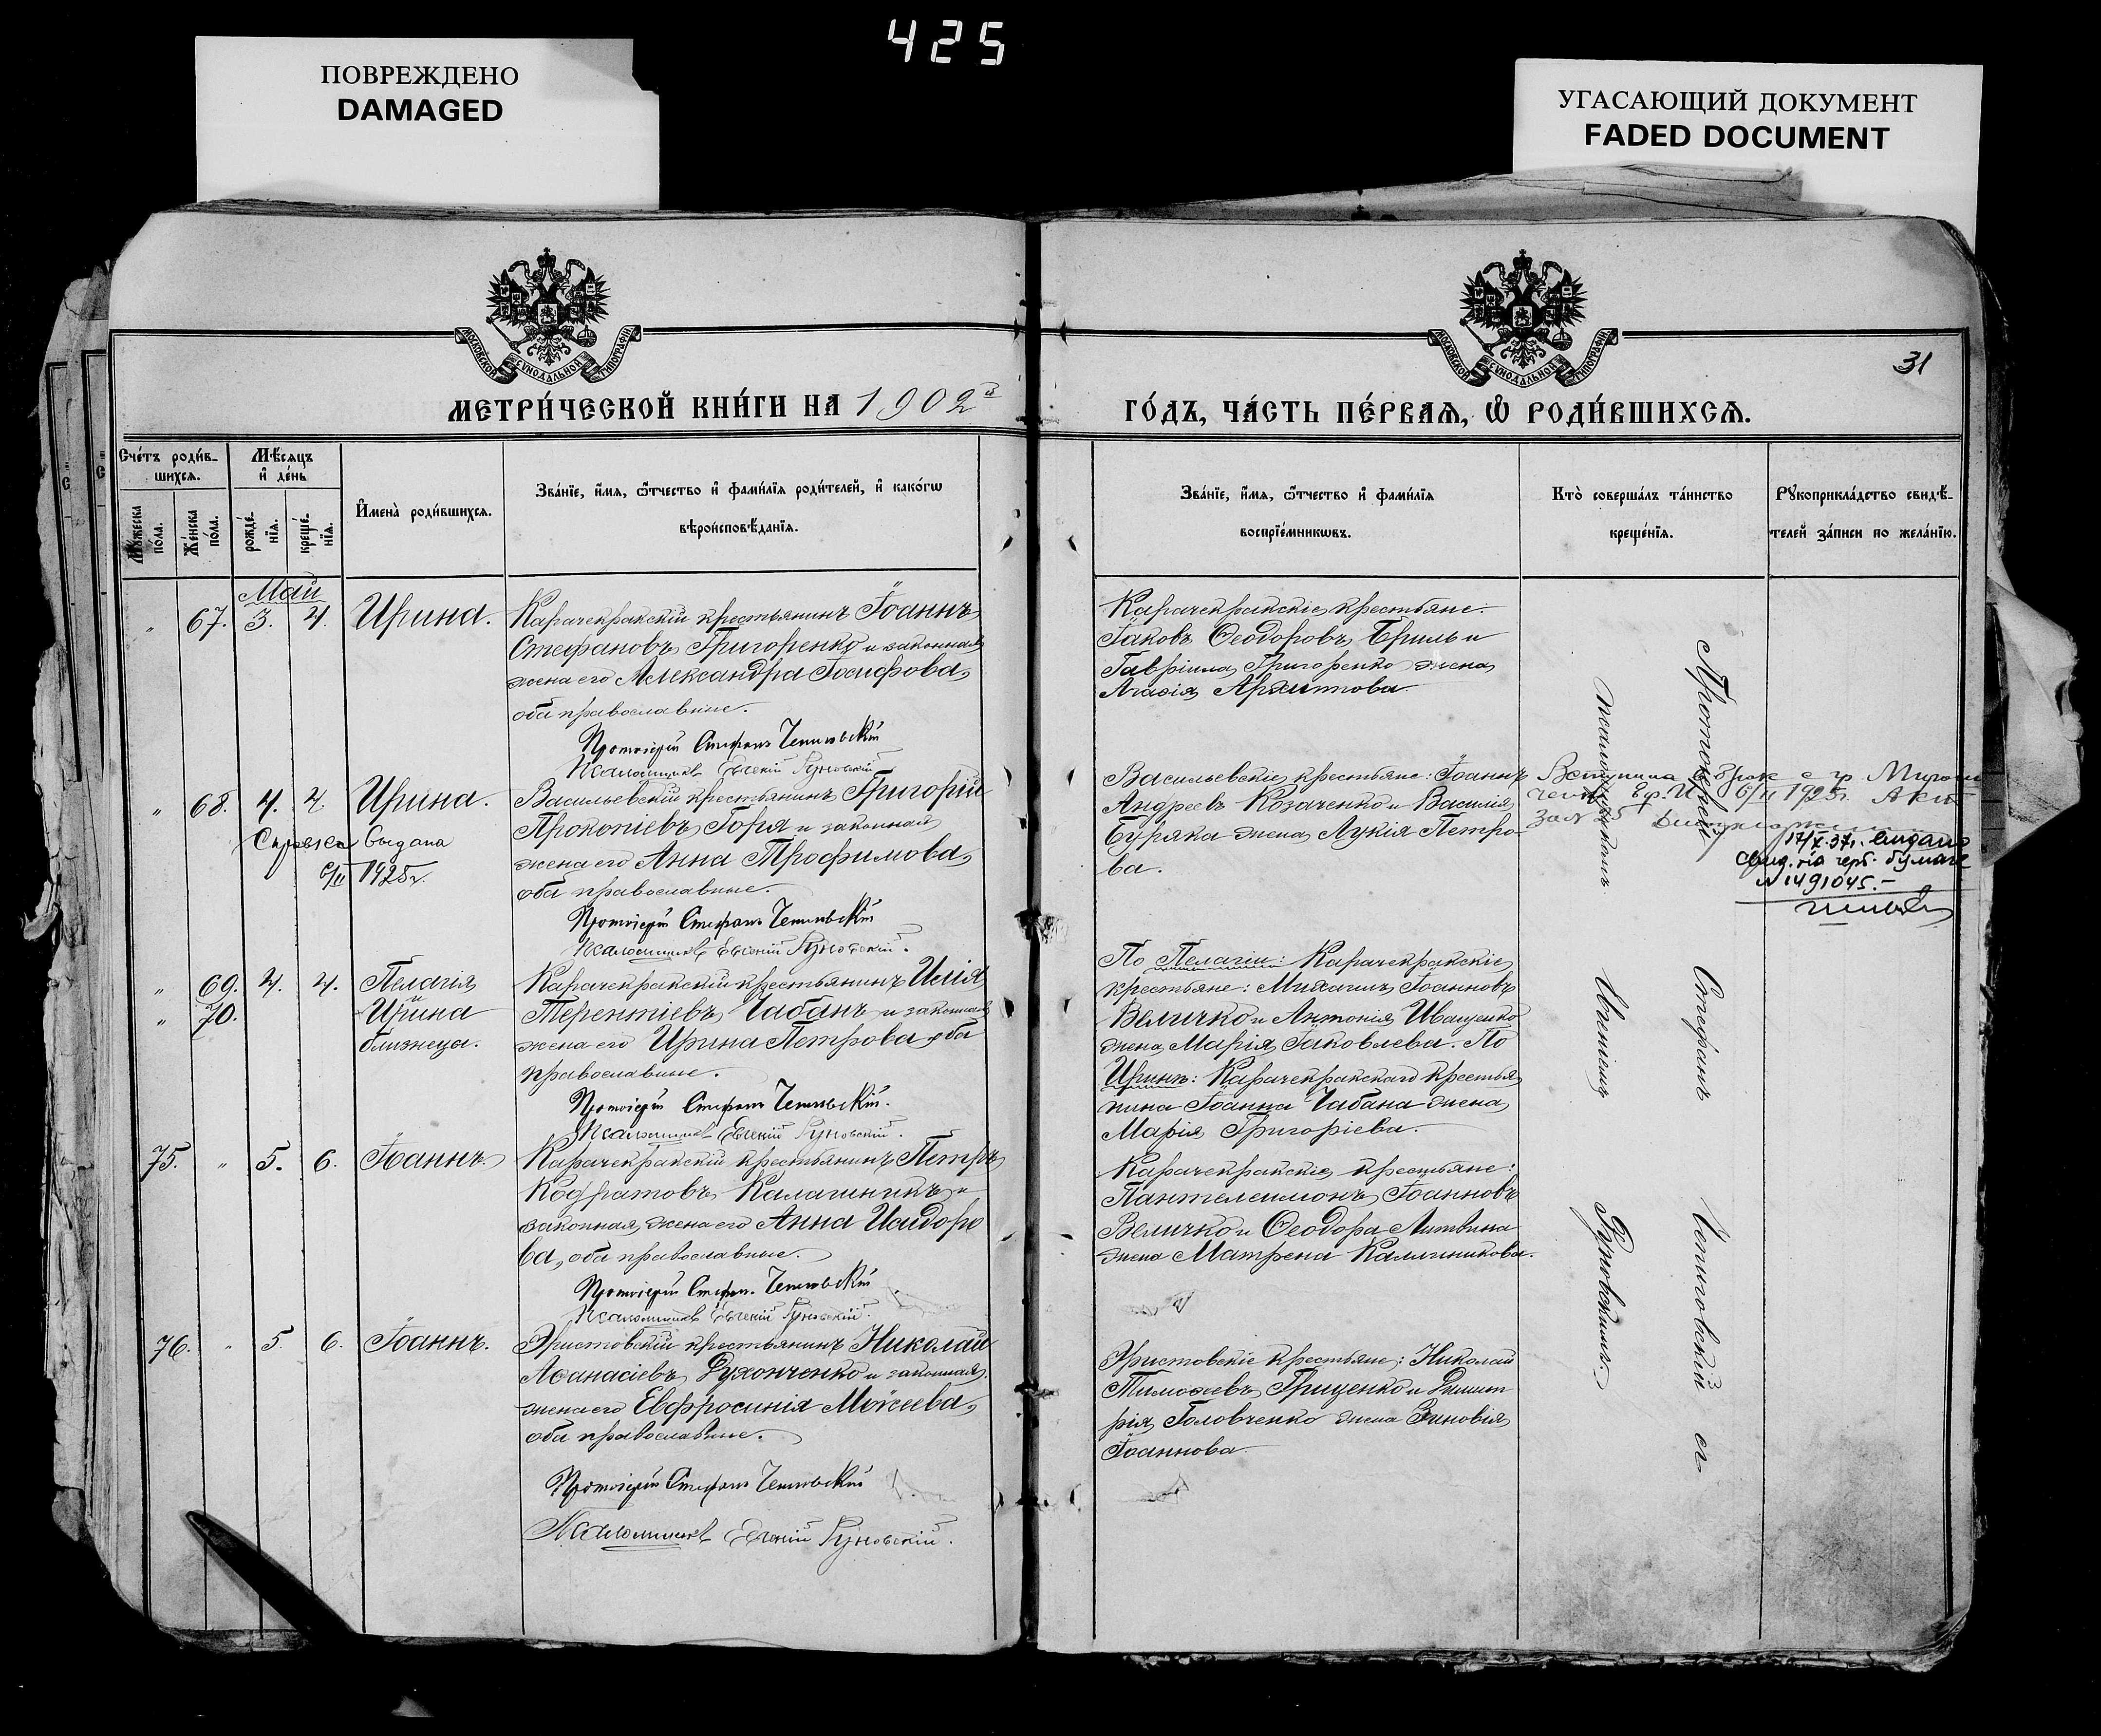 425
ПОВРЕЖДЕНО
DAMAGED
УГАСАЮЩИЙ ДОКУМЕНТ
FADED DOCUMENT
МОСКОВСКОЙ СѴНОДАЛЬНОЙ ТИПОГРАФІИ
МОСКОВСКОЙ СѴНОДАЛЬНОЙ ТИПОГРАФІИ
31
МЕТРИ́ЧЕСКОЙ КНИ́ГИ НА 1902й
ГО́ДЪ, ЧА́СТЬ ПЕ́РВАѦ, Ѡ҆ РОДИ́ВШИХСѦ.
Сче́тъ роди́в-
шихсѧ.
Мѣ́сѧцъ
и҆ де́нь
Мꙋ́жеска
по́ла.
Же́нска
по́ла.
рожде́-
нїѧ.
креще́-
нїѧ.
И҆мена̀ роди́вшихсѧ.
Зва́нїе, и҆́мѧ, ѻ҆́тчество и҆ фами́лїѧ роди́телей, и҆ како́гѡ
вѣроисповѣ́данїѧ.
Зва́нїе, и҆́мѧ, ѻ҆́тчество и҆ фами́лїѧ
воспрїе́мникѡвъ.
Кто̀ соверша́лъ та́инство
креще́нїѧ.
Рꙋкоприкла́дство свидѣ́-
телей за́писи по жела́нїю.
Май
" 67. 3. 4. Ирина.
Карачекракскій крестьянинъ Іоаннъ
Стефановъ Григоренко и законная
жена его Александра Іосифова,
оба православные.
Протоіерей Стефанъ Чепиговскій
Псаломщикъ Евгеній Руновскій
Карачекракскіе крестьяне:
Іаковъ Ѳеодоровъ Бриль и
Гавріила Григоренко жена
Агаѳія Архиппова.
" 68. 4. 4. Ирина.
Справка выдана
6/II 1925г.
Васильевскій крестьянинъ Григорій
Прокопіевъ Горя и законная
жена его Анна Трофимова,
оба православные.
Протоіерей Стефанъ Чепиговскій
Псаломщикъ Евгеній Руновскій.
Васильевскіе крестьяне: Іоаннъ
Андреевъ Козаченко и Василія
Буряка жена Лукія Петро-
ва.
Вступила в брак с гр.
6/II 1925г. Акт
за № 25
17/X.37г. выдано
свид. на герб. бумаге
№ 1491045.-
" 69. 4. 4. Пелагія
" 70. Ирина
близнецы.
Карачекракскій крестьянинъ Илія
Терентіевъ Чабанъ и законная
жена его Ирина Петрова, оба
православные.
Протоіерей Стефанъ Чепиговскій.
Псаломщикъ Евгеній Руновскій.
По Пелагіи: Карачекракскіе
крестьяне: Михаилъ Іоанновъ
Величко и Антонія Иващенко
жена Марія Іаковлева. По
Иринѣ: Карачекракскаго крестья-
нина Іоанна Чабана жена
Марія Григоріева.
75. " 5. 6. Іоаннъ.
Карачекракскій крестьянинъ Петръ
Кодратовъ Калашникъ и
законная жена его Анна Исидоро
ва, оба православные.
Протоіерей Стефанъ Чепиговскій
Псаломщикъ Евгеній Руновскій.
Карачекракскіе крестьяне:
Пантелеимонъ Іоанновъ
Величко и Ѳеодора Литвина
жена Матрена Калинникова.
76. " 5. 6. Іоаннъ.
Христовскій крестьянинъ Николай
Аѳанасіевъ Духонченко и законная
жена его Евфросинія Моѵсеева,
оба православные.
Протоіерей Стефанъ Чепиговскій
Псаломщикъ Евгеній Руновскій.
Христовскіе крестьяне: Николай
Тимоѳеевъ Гриценко и Димит
рія Головченко жена Зиновія
Іоаннова.
Протоіерей Стефанъ Чепиговскій съ
псаломщикомъ Евгеніемъ Руновскимъ.